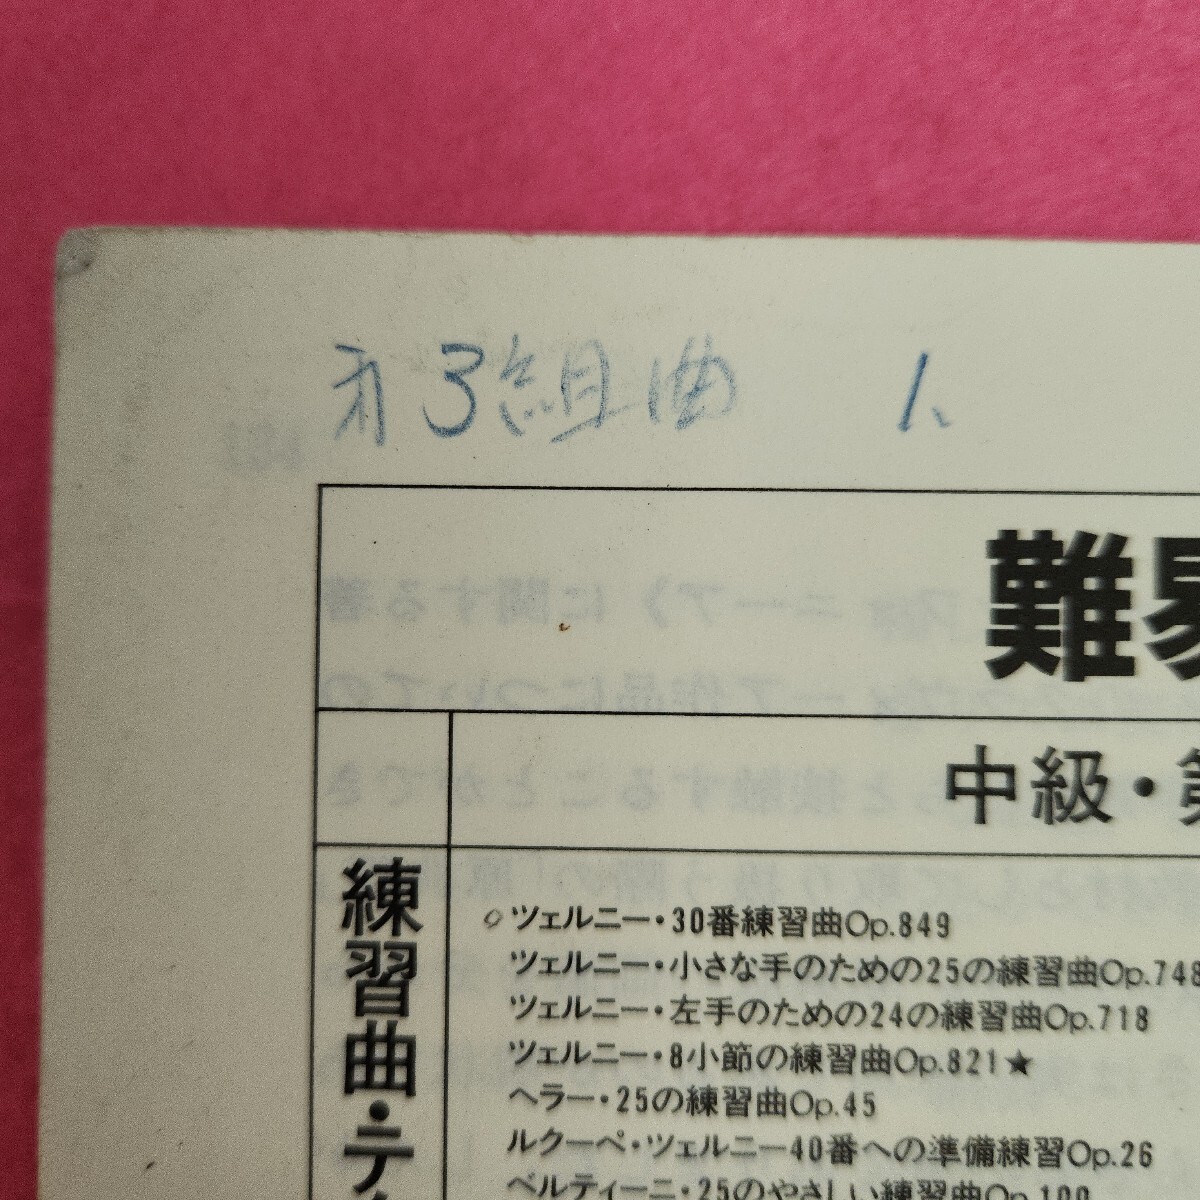 第3組曲 1、
難易
中級・第
練習曲・テ
ツェルニー・30番練習曲Op.849
ツェルニー・小さな手のための25の練習曲Op.748
ツェルニー・左手のための24の練習曲Op.718
ツェルニー・8小節の練習曲Op.821★
ヘラー・25の練習曲Op.45
ルクーペ・ツェルニー40番への準備練習Op.26
ベルティーニ・25のやさしい練習曲Op.100